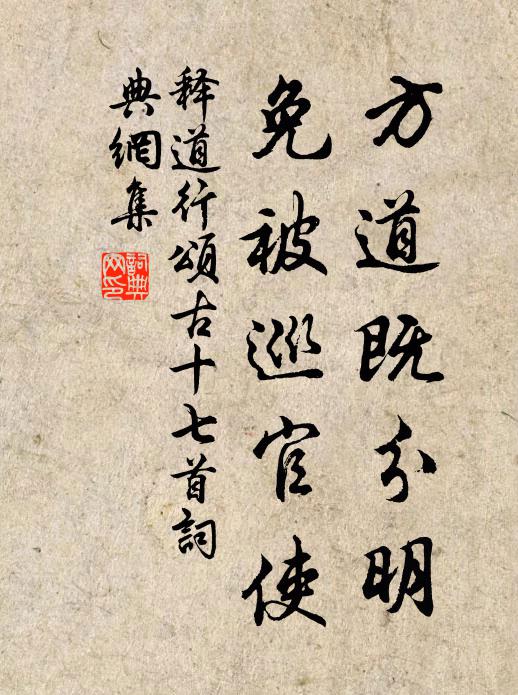 方道既分明
免被巡官使
释道行頌古十七首詞
典網集
詞典
网印